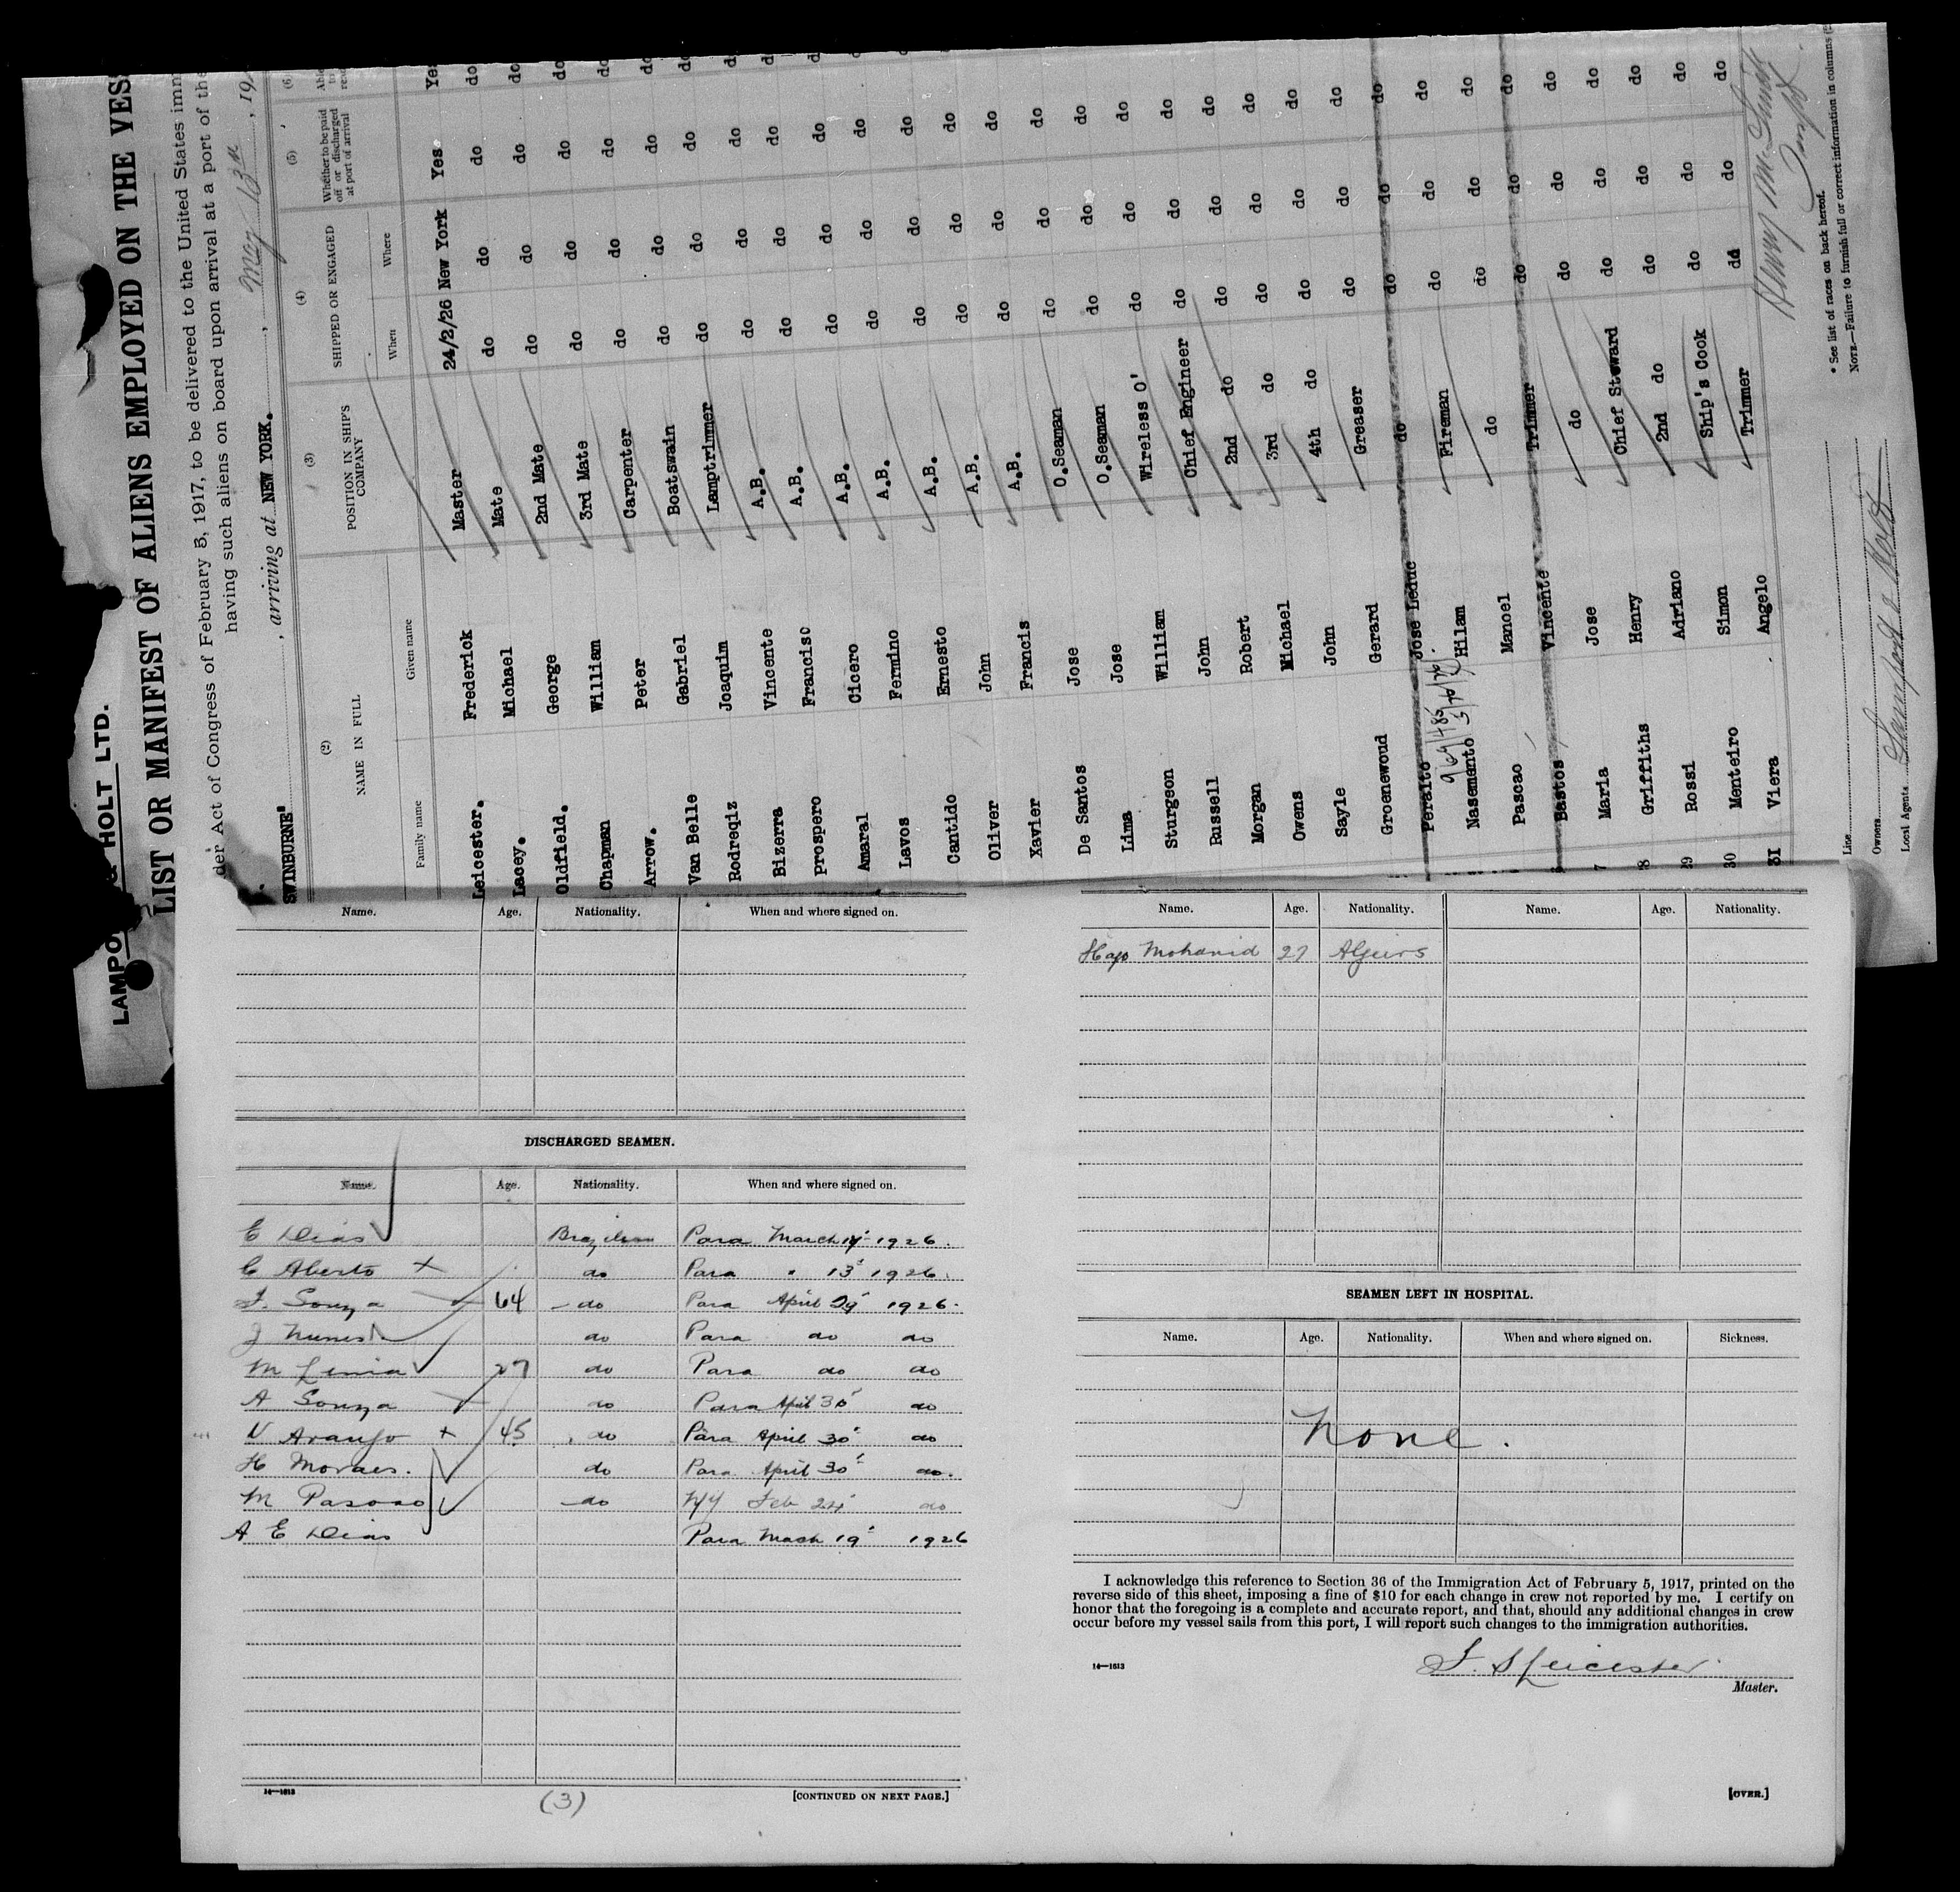 LAMPO & HOLT LTD.
LIST OR MANIFEST OF ALIENS EMPLOYED ON THE VES
der Act of Congress of February 5, 1917, to be delivered to the United States imm
having such aliens on board upon arrival at a port of the
SWINBURNE" , arriving at NEW YORK. , May 13th , 19
(2) (3) (4) (5) (6)
NAME IN FULL POSITION IN SHIP'S COMPANY SHIPPED OR ENGAGED Whether to be paid off or discharged at port of arrival
Family name Given name When Where
Leicester. Frederick Master 24/2/26 New York Yes Yes
Lacey. Michael Mate do do do do
Oldfield. George 2nd Mate do do do do
Chapman William 3rd Mate do do do do
Arrow. Peter Carpenter do do do do
Van Belle Gabriel Boatswain do do do do
Rodreqiz Joaquim Lamptrimmer do do do do
Bizerra Vincente A.B. do do do do
Prospero Francisc A.B. do do do do
Amaral Cicero A.B. do do do do
Lavos Fermino A.B. do do do do
Cantido Ernesto A.B. do do do do
Oliver John A.B. do do do do
Xavier Francis A.B. do do do do
De Santos Jose O.Seaman do do do do
Lima Jose O.Seaman do do do do
Sturgeon William Wireless O' do do do do
Russell John Chief Engineer do do do do
Morgan Robert 2nd do do do do do
Owens Michael 3rd do do do do do
Sayle John 4th do do do do do
Groenewoud Gerard Greaser do do do do
Peralto Jose Leduc do do do do do
Nasemento Hilam Fireman do do do do
Pascao Manoel do do do do do
Bastos Vincente Trimmer do do do do
7 Maria Jose do do do do do
8 Griffiths Henry Chief Steward do do do do
29 Rossi Adriano 2nd do do do do do
30 Menteiro Simon Ship's Cook do do do do
31 Viera Angelo Trimmer do do do do
Line
Owners
Local Agents Lamport & Holt
* See list of races on back hereof.
NOTE.—Failure to furnish full or correct information in columns
Name. Age. Nationality. When and where signed on.
DISCHARGED SEAMEN.
Name. Age. Nationality. When and where signed on.
E Dias Brazilian Para March 19 1926.
C Alberto do Para " 13 1926.
F. Souza 64 do Para April 29 1926.
J Nunes do Para do do
M Lima 27 do Para do do
A Souza do Para April 30 do
N Araujo 45 do Para April 30 do
H Moraes. do Para April 30 do.
M Pascoao do NY Feb 24 do
A E Dias Para March 19 1926
14—1613
(3)
[CONTINUED ON NEXT PAGE.]
Name. Age. Nationality. Name. Age. Nationality.
Hajo Mohamid 27 Algiers
SEAMEN LEFT IN HOSPITAL.
Name. Age. Nationality. When and where signed on. Sickness.
None.
I acknowledge this reference to Section 36 of the Immigration Act of February 5, 1917, printed on the
reverse side of this sheet, imposing a fine of $10 for each change in crew not reported by me. I certify on
honor that the foregoing is a complete and accurate report, and that, should any additional changes in crew
occur before my vessel sails from this port, I will report such changes to the immigration authorities.
14—1613
F. S Leicester
Master.
[OVER.]